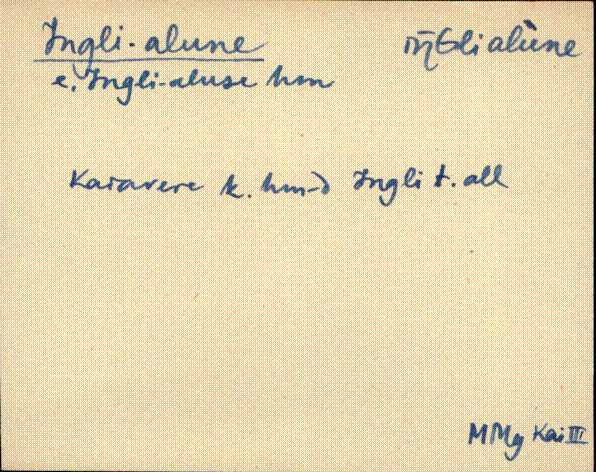 Ingli-alune
iŋ̄Gli alùne
e. Ingli-aluse hm
Kaiavere k. hm-d Ingli t. all
MMg Kai III